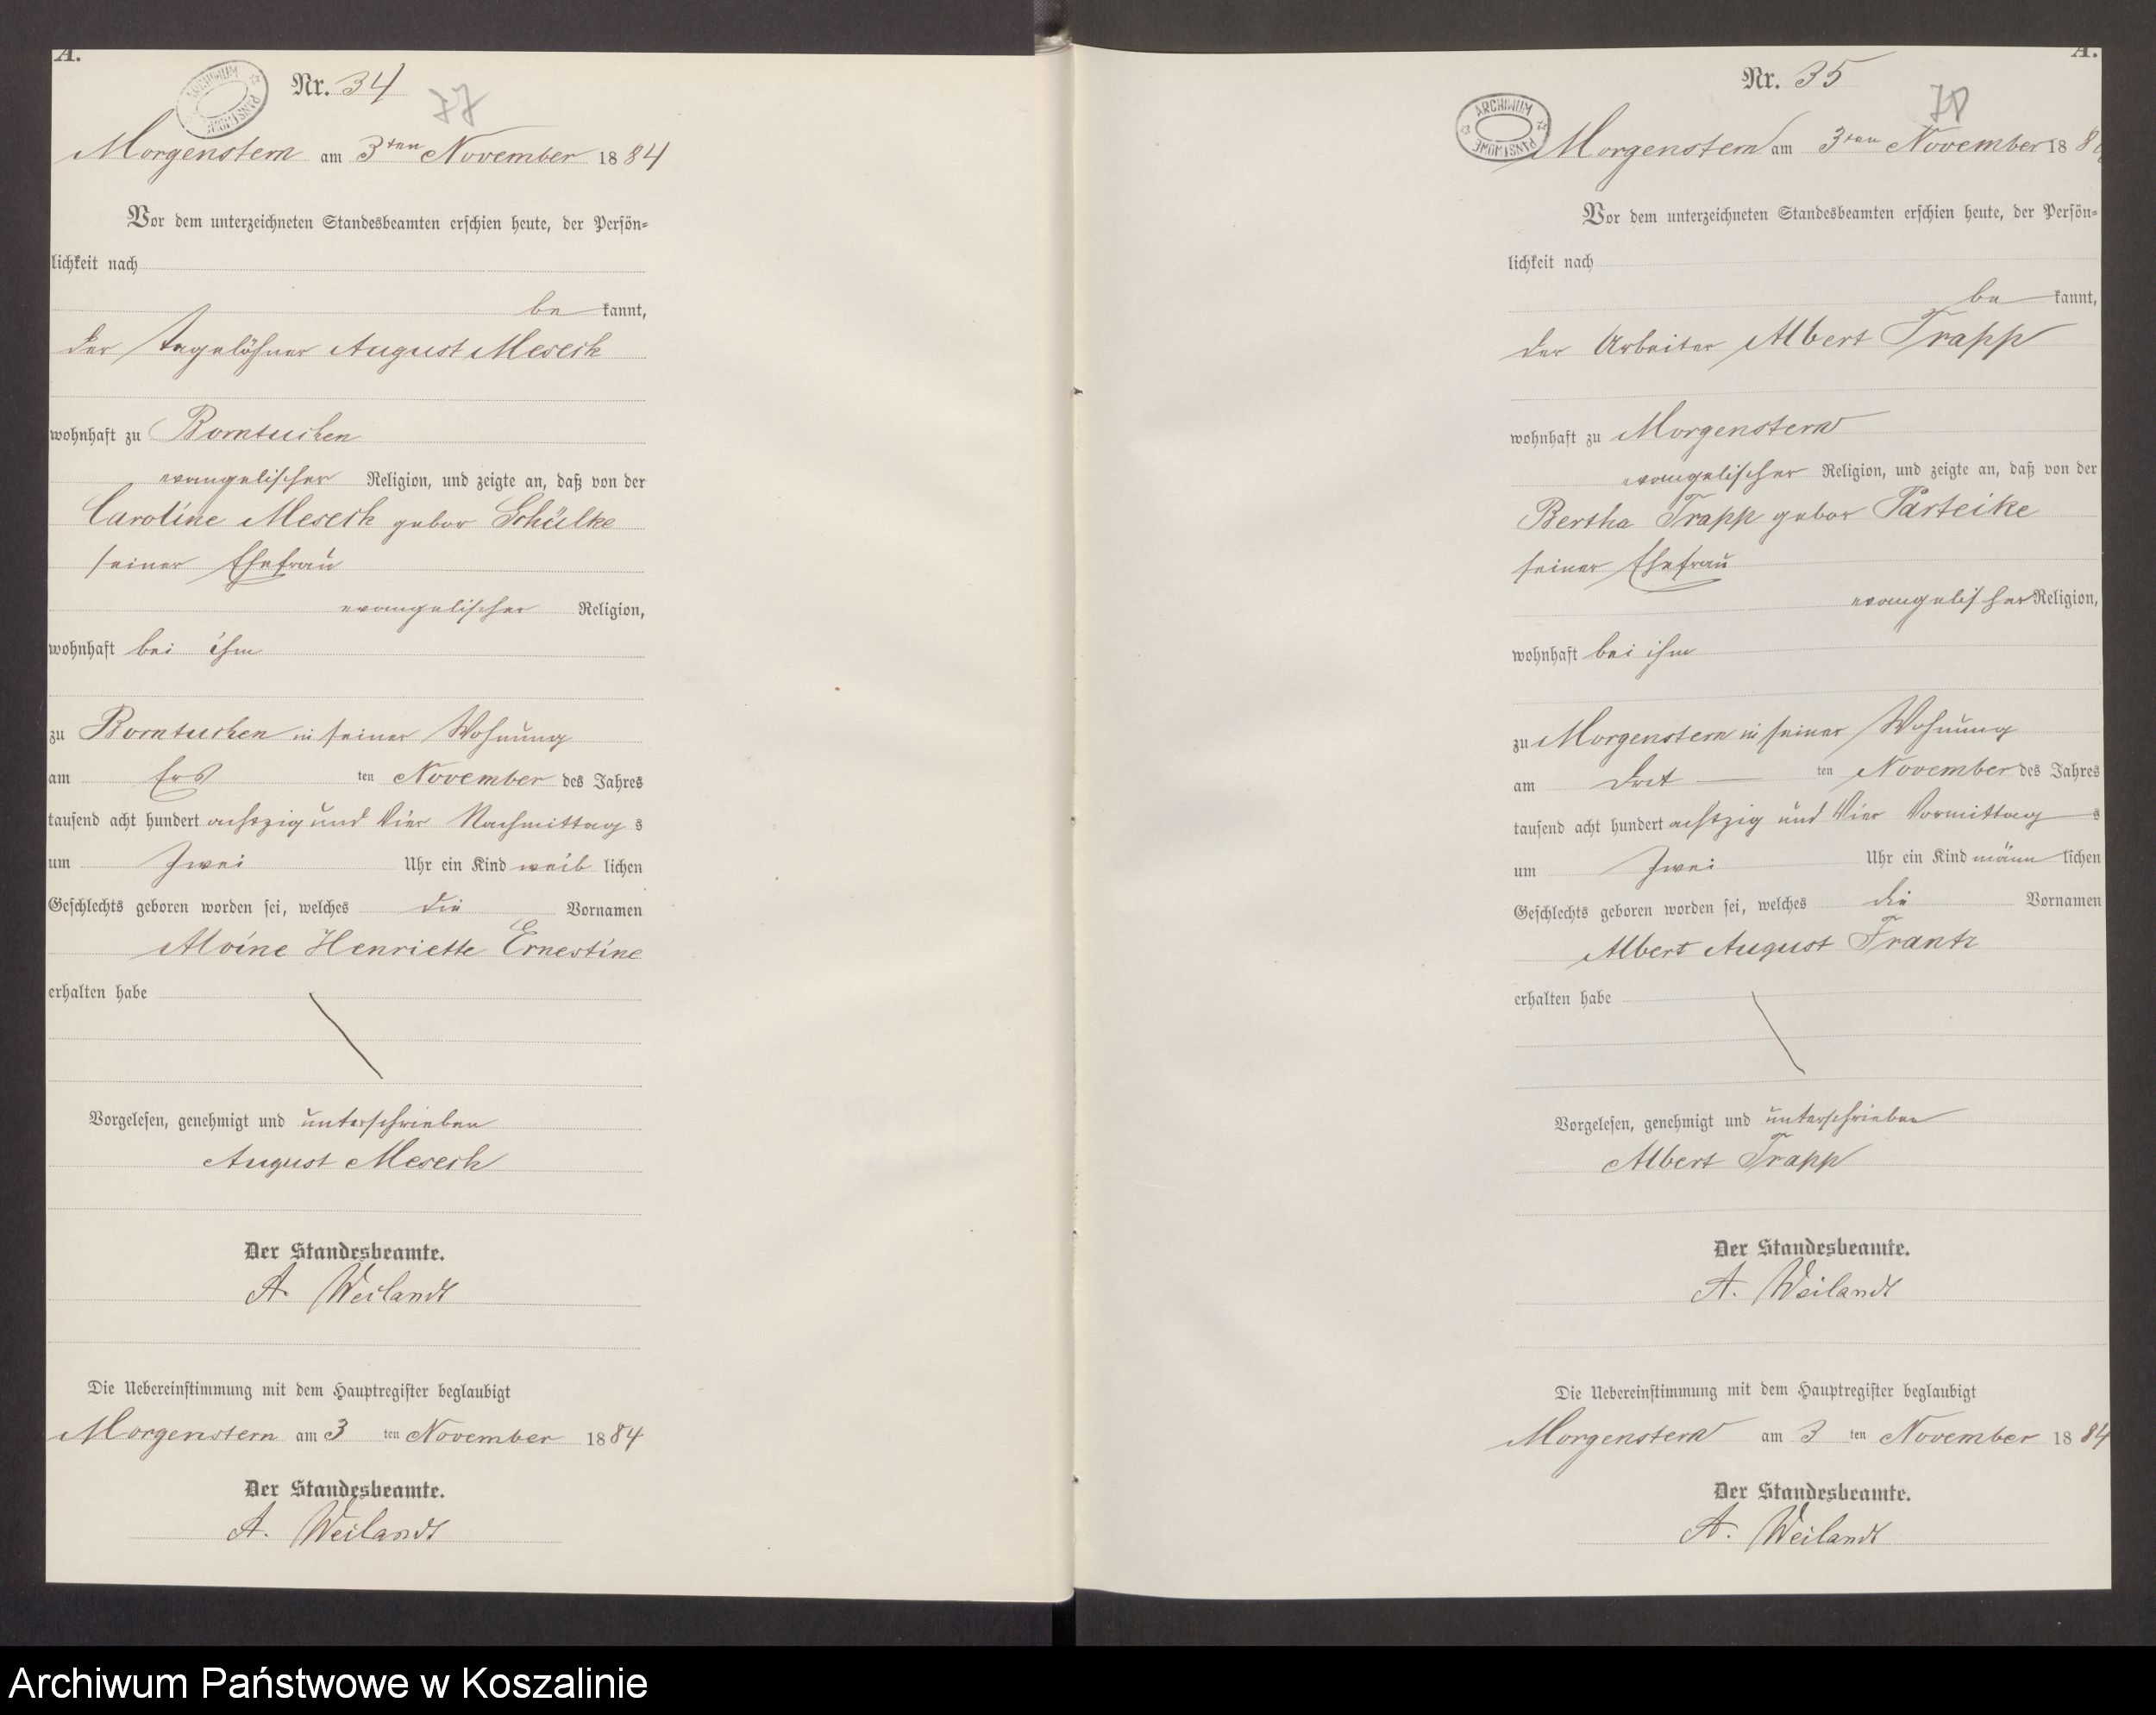 A.
ARCHIWUM PAŃSTWOWE
Nr. 34
77
Morgenstern am 3ten November 1884
Vor dem unterzeichneten Standesbeamten erschien heute, der Persön=
lichkeit nach
be kannt,
der Tagelöhner August Meseck
wohnhaft zu Borntuchen
evangelischer Religion, und zeigte an, daß von der
Caroline Meseck gebor Schülke
seiner Ehefrau
evangelischer Religion,
wohnhaft bei ihm
zu Borntuchen in seiner Wohnung
am Ers ten November des Jahres
tausend acht hundert achtzig und Vier Nachmittag s
um Zwei Uhr ein Kind weib lichen
Geschlechts geboren worden sei, welches die Vornamen
Henriette Ernestine
erhalten habe
Vorgelesen, genehmigt und unterschrieben
August Meseck
Der Standesbeamte.
A. Weilandt
Die Uebereinstimmung mit dem Hauptregister beglaubigt
Morgenstern am 3 ten November 1884
Der Standesbeamte.
A. Weilandt
A.
Nr. 35
78
ARCHIWUM PAŃSTWOWE
Morgenstern am 3ten November 188
Vor dem unterzeichneten Standesbeamten erschien heute, der Persön=
lichkeit nach
be kannt,
der Arbeiter Albert Trapp
wohnhaft zu Morgenstern
evangelischer Religion, und zeigte an, daß von der
Bertha Trapp gebor Parteike
seiner Ehefrau
evangelischer Religion,
wohnhaft bei ihm
zu Morgenstern in seiner Wohnung
am Drit ten November des Jahres
tausend acht hundert achtzig und Vier Vormittag s
um Zwei Uhr ein Kind männ lichen
Geschlechts geboren worden sei, welches die Vornamen
Albert August Frantz
erhalten habe
Vorgelesen, genehmigt und unterschrieben
Albert Trapp
Der Standesbeamte.
A. Weilandt
Die Uebereinstimmung mit dem Hauptregister beglaubigt
Morgenstern am 3 ten November 1884
Der Standesbeamte.
A. Weilandt
Archiwum Państwowe w Koszalinie